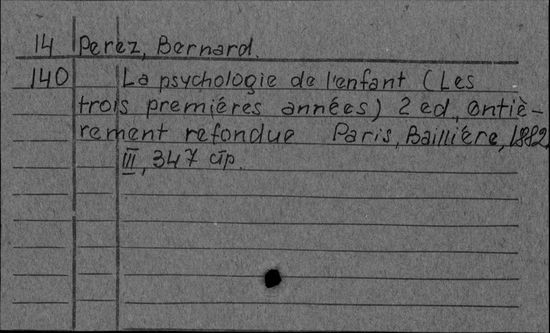 14 Perez, Bernard.
140 La psychologie de l'enfant (Les
trois premiéres années) 2 ed., entiè-
rement refondue Paris, Baillière, 1882,
III, 347 стр.